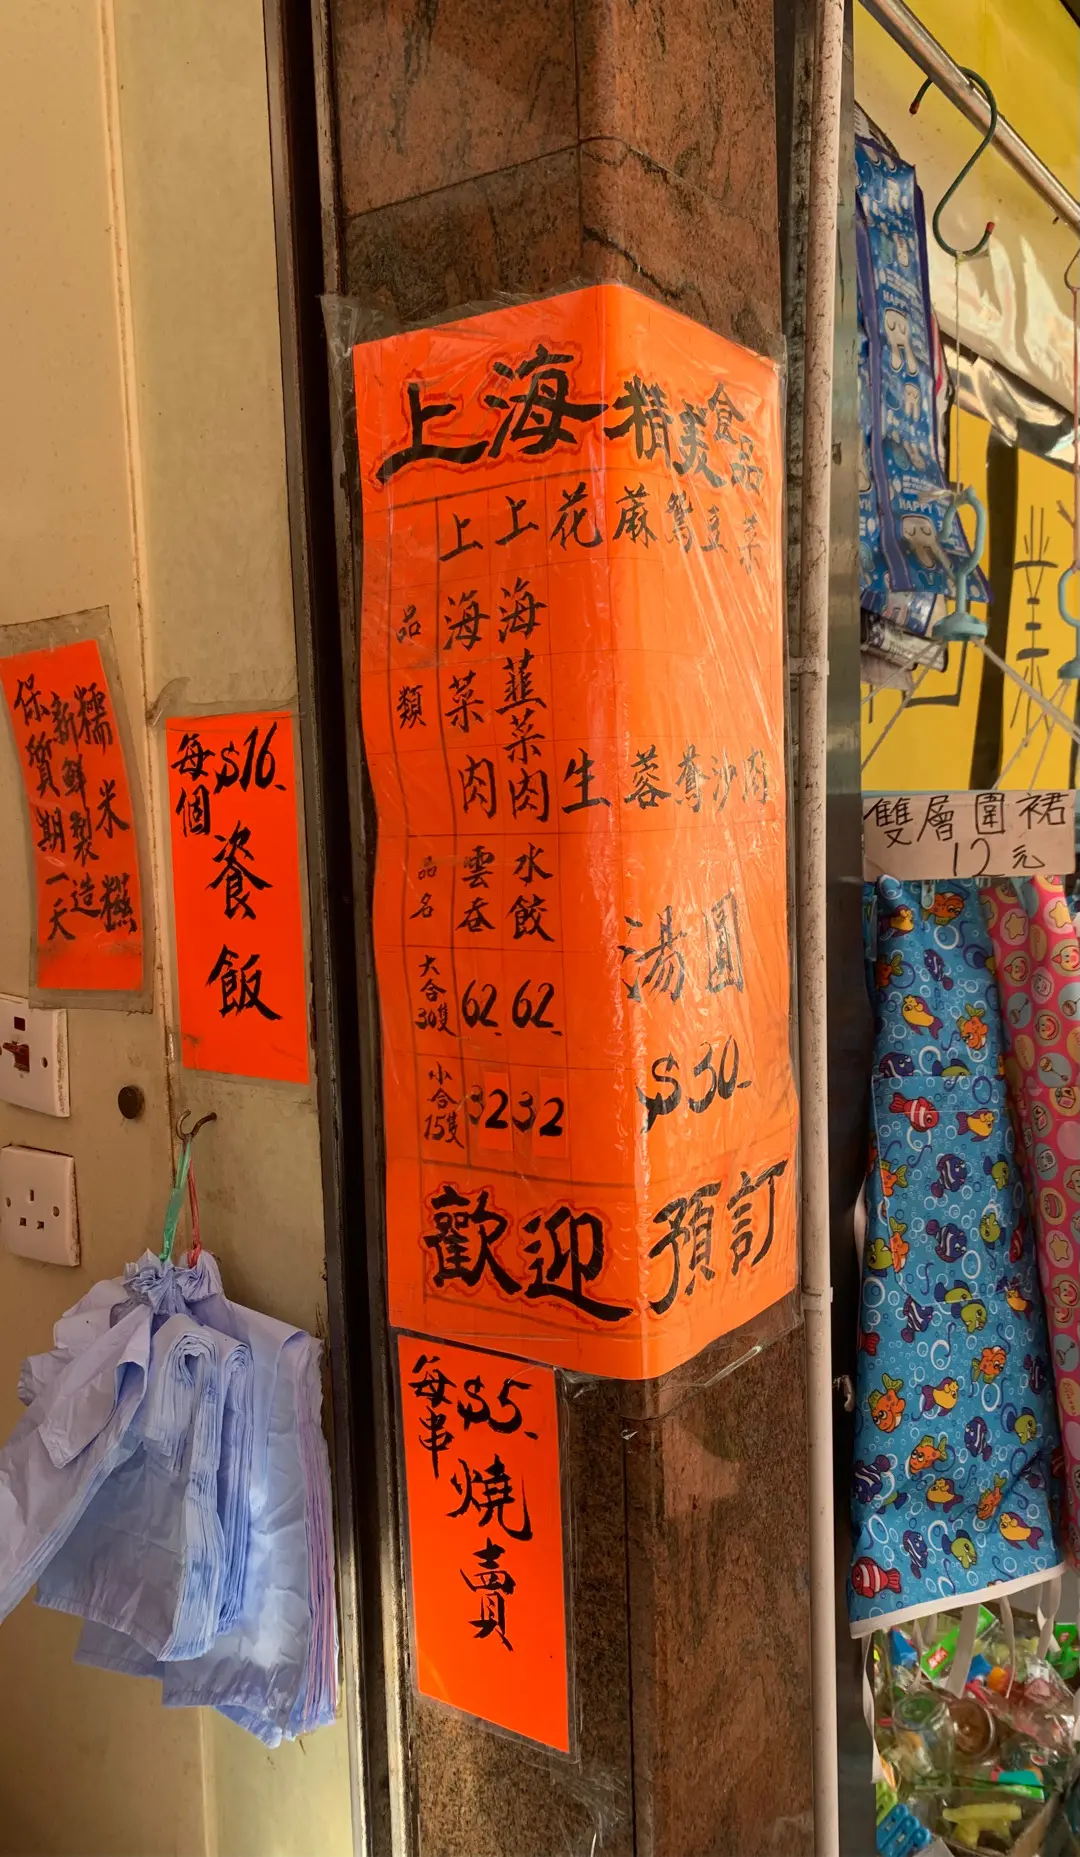 糯米糍
新鮮製造
保質期一天
每個 $16.
粢飯
上海精美食品
品類 上海菜肉 上海韮菜肉 花生 麻蓉 鴛鴦 豆沙 菜肉
品名 雲吞 水餃 湯圓
大合30隻 62. 62. $30.
小合15隻 32 32
歡迎預訂
每串 $5.
燒賣
雙層圍裙
12元
HAPPY
HAPPY